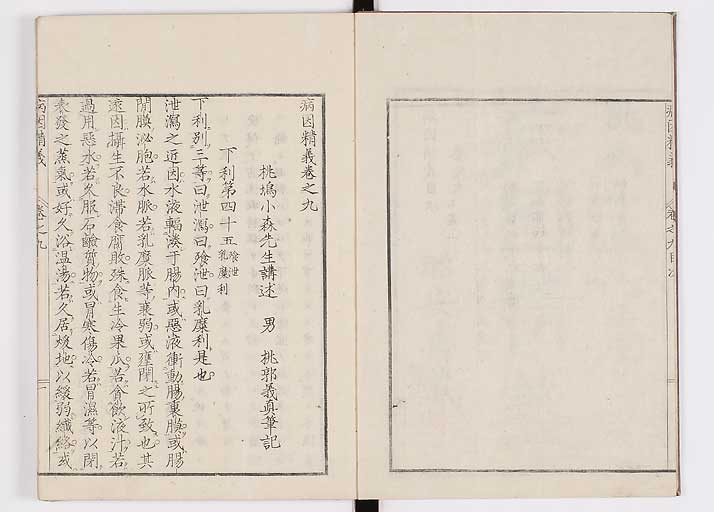 病因精義卷之九
桃塢小森先生講述 男 桃郭義眞筆記
下利第四十五 飧泄 乳糜利
下利別三等曰泄瀉曰飧泄曰乳糜利是也
泄瀉之近因水液輻湊于腸內或惡液衝動腸裏膜或腸
間膜泌胞若水脈若乳糜脈等衰弱或壅閉之所致也其
遠因攝生不良滯食腐敗殊食生冷果瓜若貪飲液汁若
過用惡水若久服石鹼質物或冒寒傷冷若冒濕等以閉
表發之蒸氣或好久浴溫湯若久居煖地以緩弱纖絡或
病因精義 卷之九 一
病因精義 卷之九目次